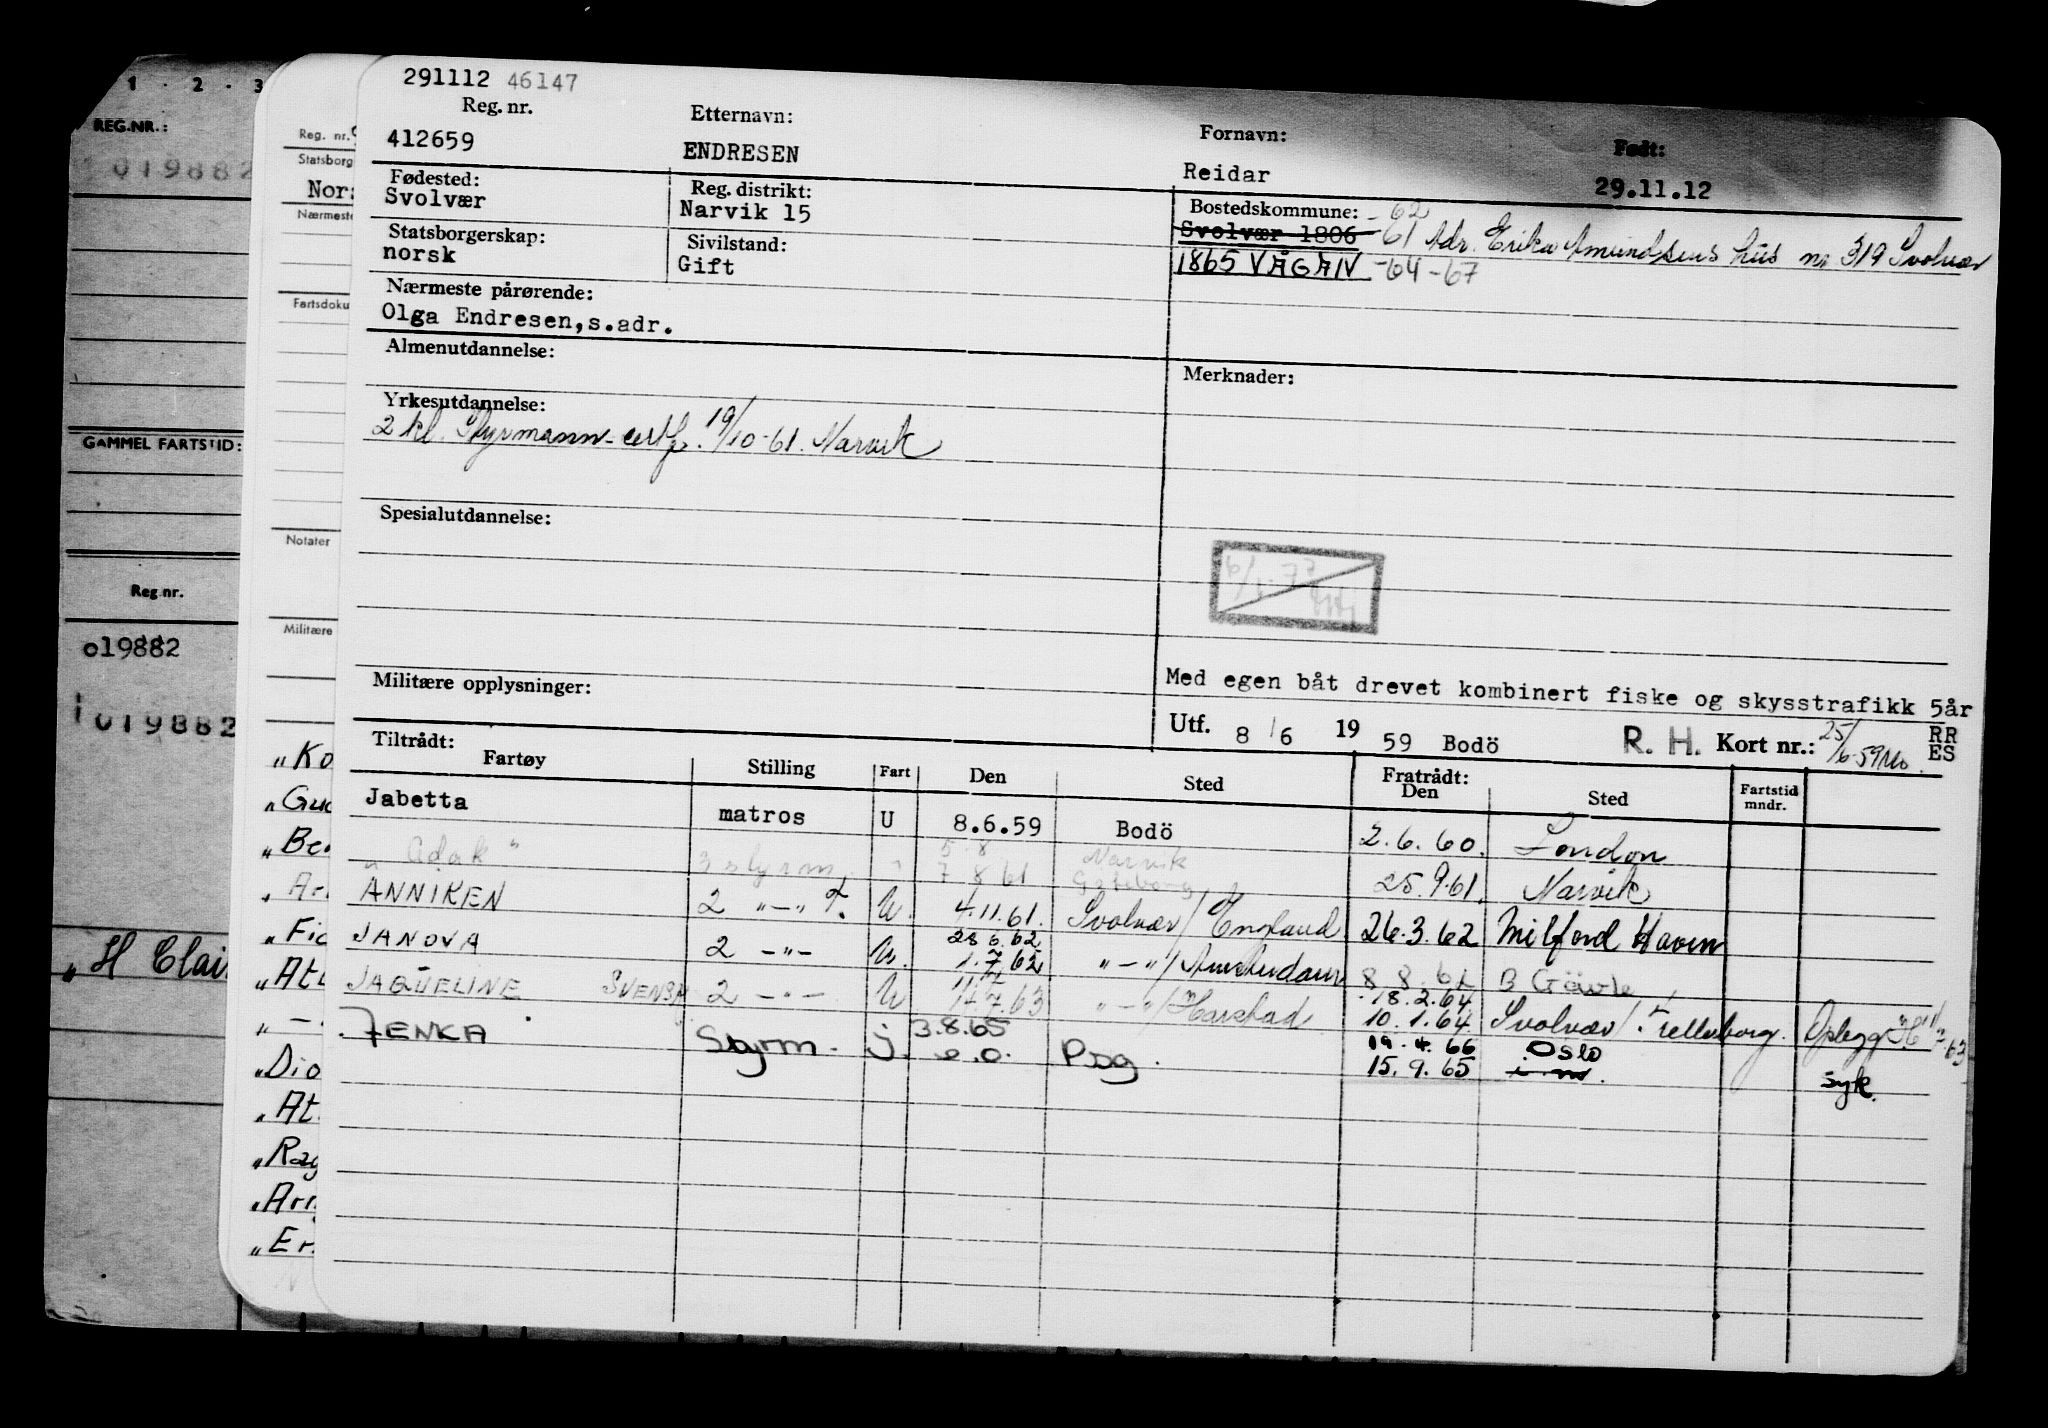 291112 46147
Reg. nr.
412659
Etternavn:
ENDRESEN
Fornavn:
Reidar
Født:
29.11.12
Fødested:
Svolvær
Reg. distrikt:
Narvik 15
Bostedskommune: -62
Svolvær 1806 -61 Adr. Erika Amundsens hus nr 319 Svolvær
1865 VÅGAN -64-67
Statsborgerskap:
norsk
Sivilstand:
Gift
Nærmeste pårørende:
Olga Endresen,s.adr.
Almenutdannelse:
Merknader:
Yrkesutdannelse:
2 kl. Styrmann-certf. 19/10-61. Narvik
Spesialutdannelse:
Militære opplysninger:
Med egen båt drevet kombinert fiske og skysstrafikk 5år
Utf. 8/6 1959 Bodö R. H. Kort nr.: 25/6-59 RR
ES
Tiltrådt: Fartøy Stilling Fart Den Sted Fratrådt: Den Sted Fartstid mndr.
Jabetta matros U 8.6.59 Bodö 2.6.60. London
5.8 Narvik
"Adak" 3 styrm " 7 8 61 Göteborg 25.9.61. Narvik
ANNIKEN 2 "-" U. 4.11.61. Svolvær/England 26.3.62 Milford Haven
28 6.62
JANOVA 2 -"- U. 1.7 62 "-"/Amsterdam 8 8. 62 Gävle
18.2.64
JAQUELINE SVENSK 2 -"- U 7.63 "-"/Harstad 10.1.64. Svolvær/Trelleborg. Oplegg
3.8.65 19.4.66 Oslo
JENKA Styrm. J. Psg. 15.9.65 syk.
1 . 2 . 3
REG.NR.:
019882
GAMMEL FARTSTID:
Reg.nr.
o19882
019882
"H Clai
Reg. nr.
Statsborg
Nors
Nærmeste
Fartsdoku
Notater
Militære
"Ko
"Gu
"Be
"Ar
"Fi
"At
"-
"Dio
"At
"Rag
"Arn
"Er